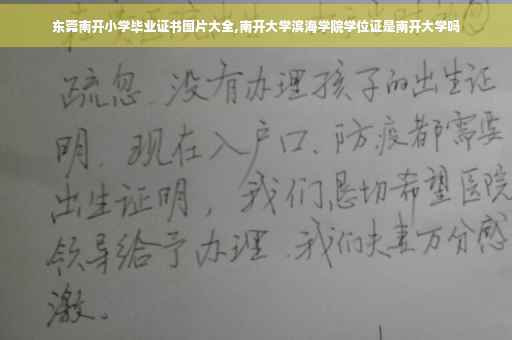 东莞南开小学毕业证书图片大全,南开大学滨海学院学位证是南开大学吗
疏忽、没有办理孩子的出生证
明。现在入户口、防疫都需要
出生证明，我们恳切希望医院
领导给予办理、我们夫妻万分感
激。